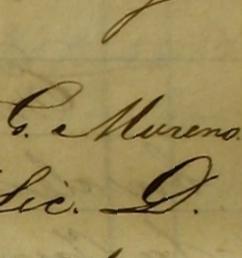 G. Moreno.
Lic. D.